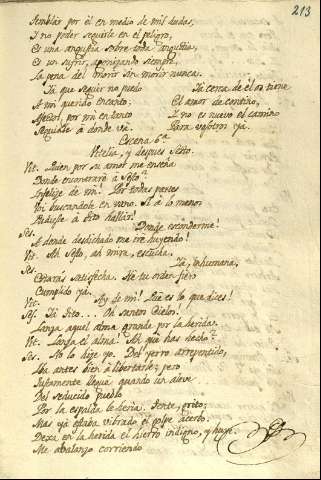 213
Temblar por él en medio de mis dudas,
Y no poder seguirle en el peligro,
Es una angustia sobre toda angustia,
Es un sufrir, agonizando siempre,
La pena del morir sin morir nunca.
Ya que seguir no puedo
A mi querido encanto;
Afectos, por mi en tanto
Seguidle á donde vá.
Ya cerca de él os tiene
El amor de contino,
Y no es nuevo el camino
Para vosotros yá.
Escena 6ª
Vitelia, y despues Sesto.
Vit. Quien por su amor me enseña
Donde encontraré à Sesto?
Infelize de mi! Por todas partes
Voi buscandole en vano. Si à lo menos
Pudiese à Tito hallar!
Ses. Donde esconderme!
A donde desdichado me iré huyendo!
Vit. Ah Sesto, ah mira, escucha.
Ses. Yà, inhumana,
Estarás satisfecha. Yà tu orden fiero
Cumplido yá.
Vit. Ay de mi! Que es lo que dizes!
Ses. Yá Tito... Oh santos Cielos!
Lanza aquel alma grande por la herida.
Vit. Lanza el alma! Ah què has hecho?
Ses. No lo hize yo. Del yerro arrepentido,
Iba antes bien à libertarle; pero
Justamente llegua quando un aleve
Del seducido pueblo
Por la espalda le heria. Tente, grito;
Mas yá estaba vibrado el golpe acerbo.
Dexa en la herida el hierro indigno, y huye.
Me abalanzo corriendo